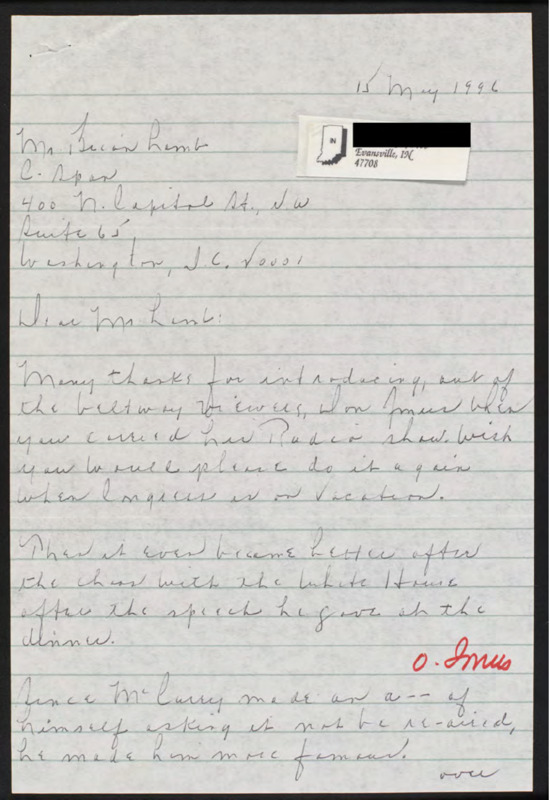 15 May 1996
IN
Evansville, IN
47708
Mr Brian Lamb
C-Span
400 N. Capitol St., NW
Suite 65
Washington, D.C. 20001
Dear Mr Lamb:
Many thanks for introducing, out of
the beltway viewers, Don Imus when
you carried his Radio show. Wish
you would please do it again
when Congress is on vacation.
Then it even became better after
the chaos with the White House
after the speech he gave at the
dinner.
O. Imus
Since McCurry made an a-- of
himself asking it not be re-aired,
he made him more famous.
over